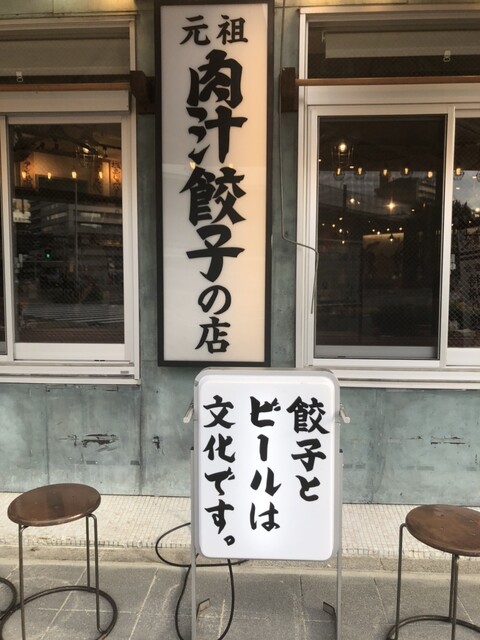 元祖
肉汁餃子の店
餃子と
ビールは
文化です。